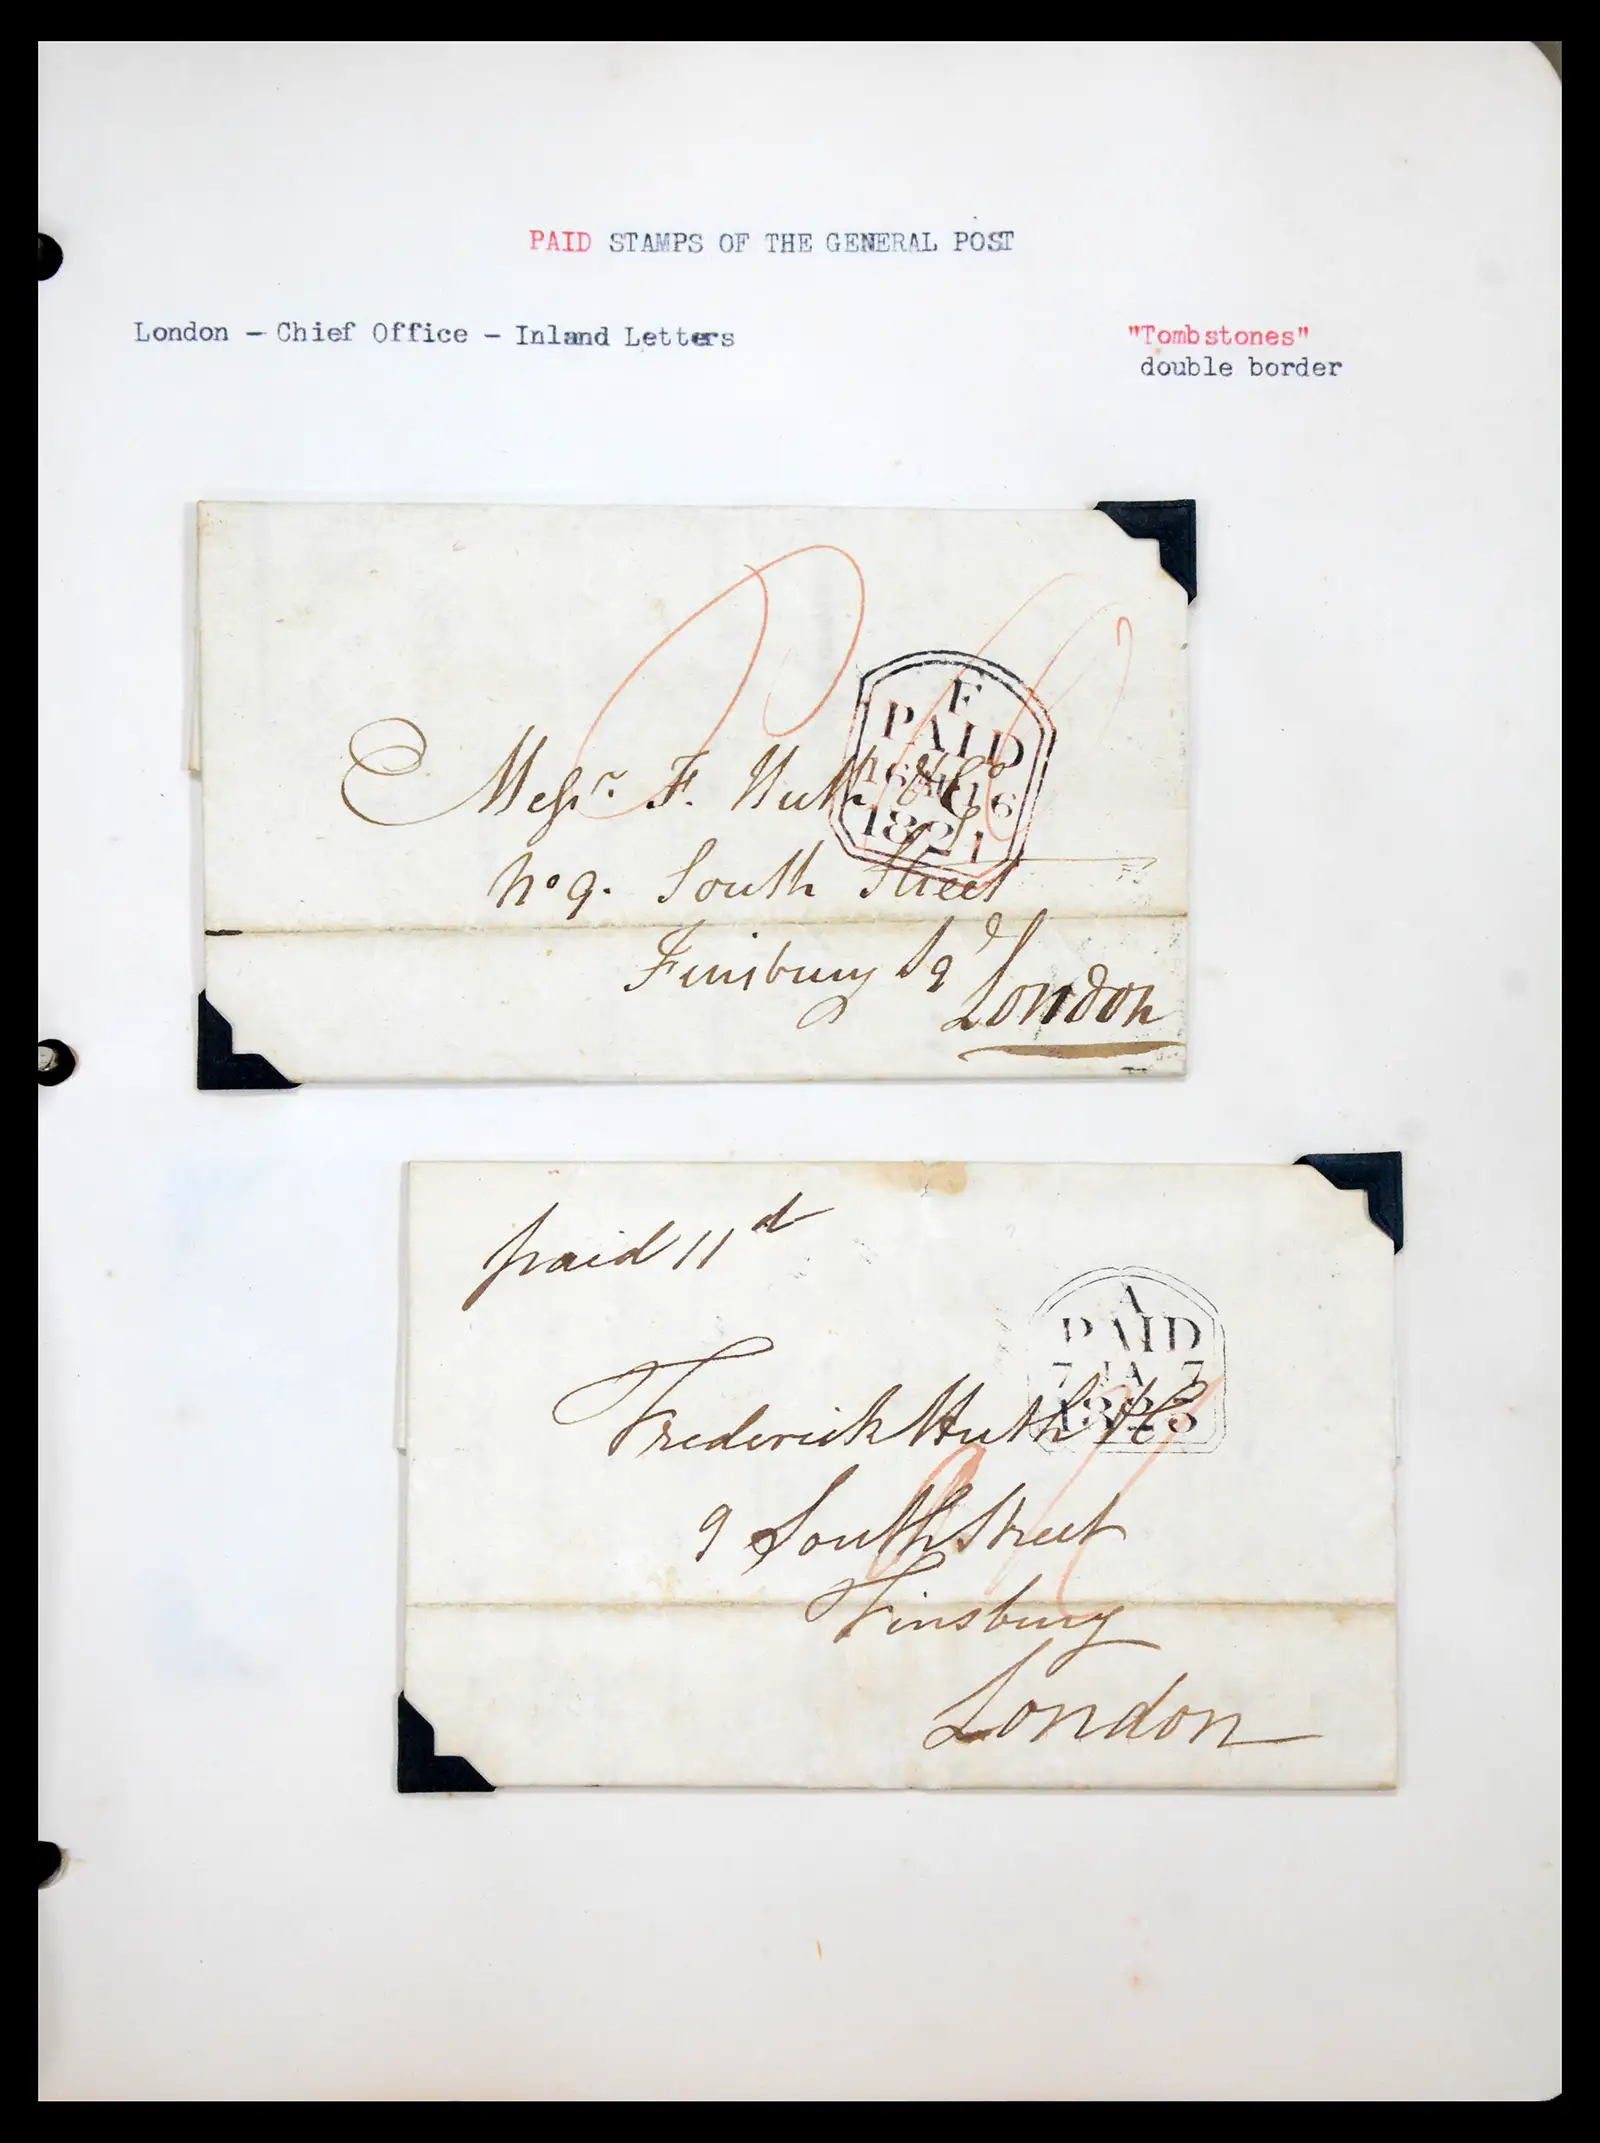 PAID STAMPS OF THE GENERAL POST
London - Chief Office - Inland Letters
"Tombstones"
double border
F
PAID
16 16
1821
Messrs. F. Huth & Co
No 9. South Street
Finsbury Sqd
London
paid 11d
A
PAID
7 JA 7
Frederick Huth & Co
9 South Street
Finsbury
London